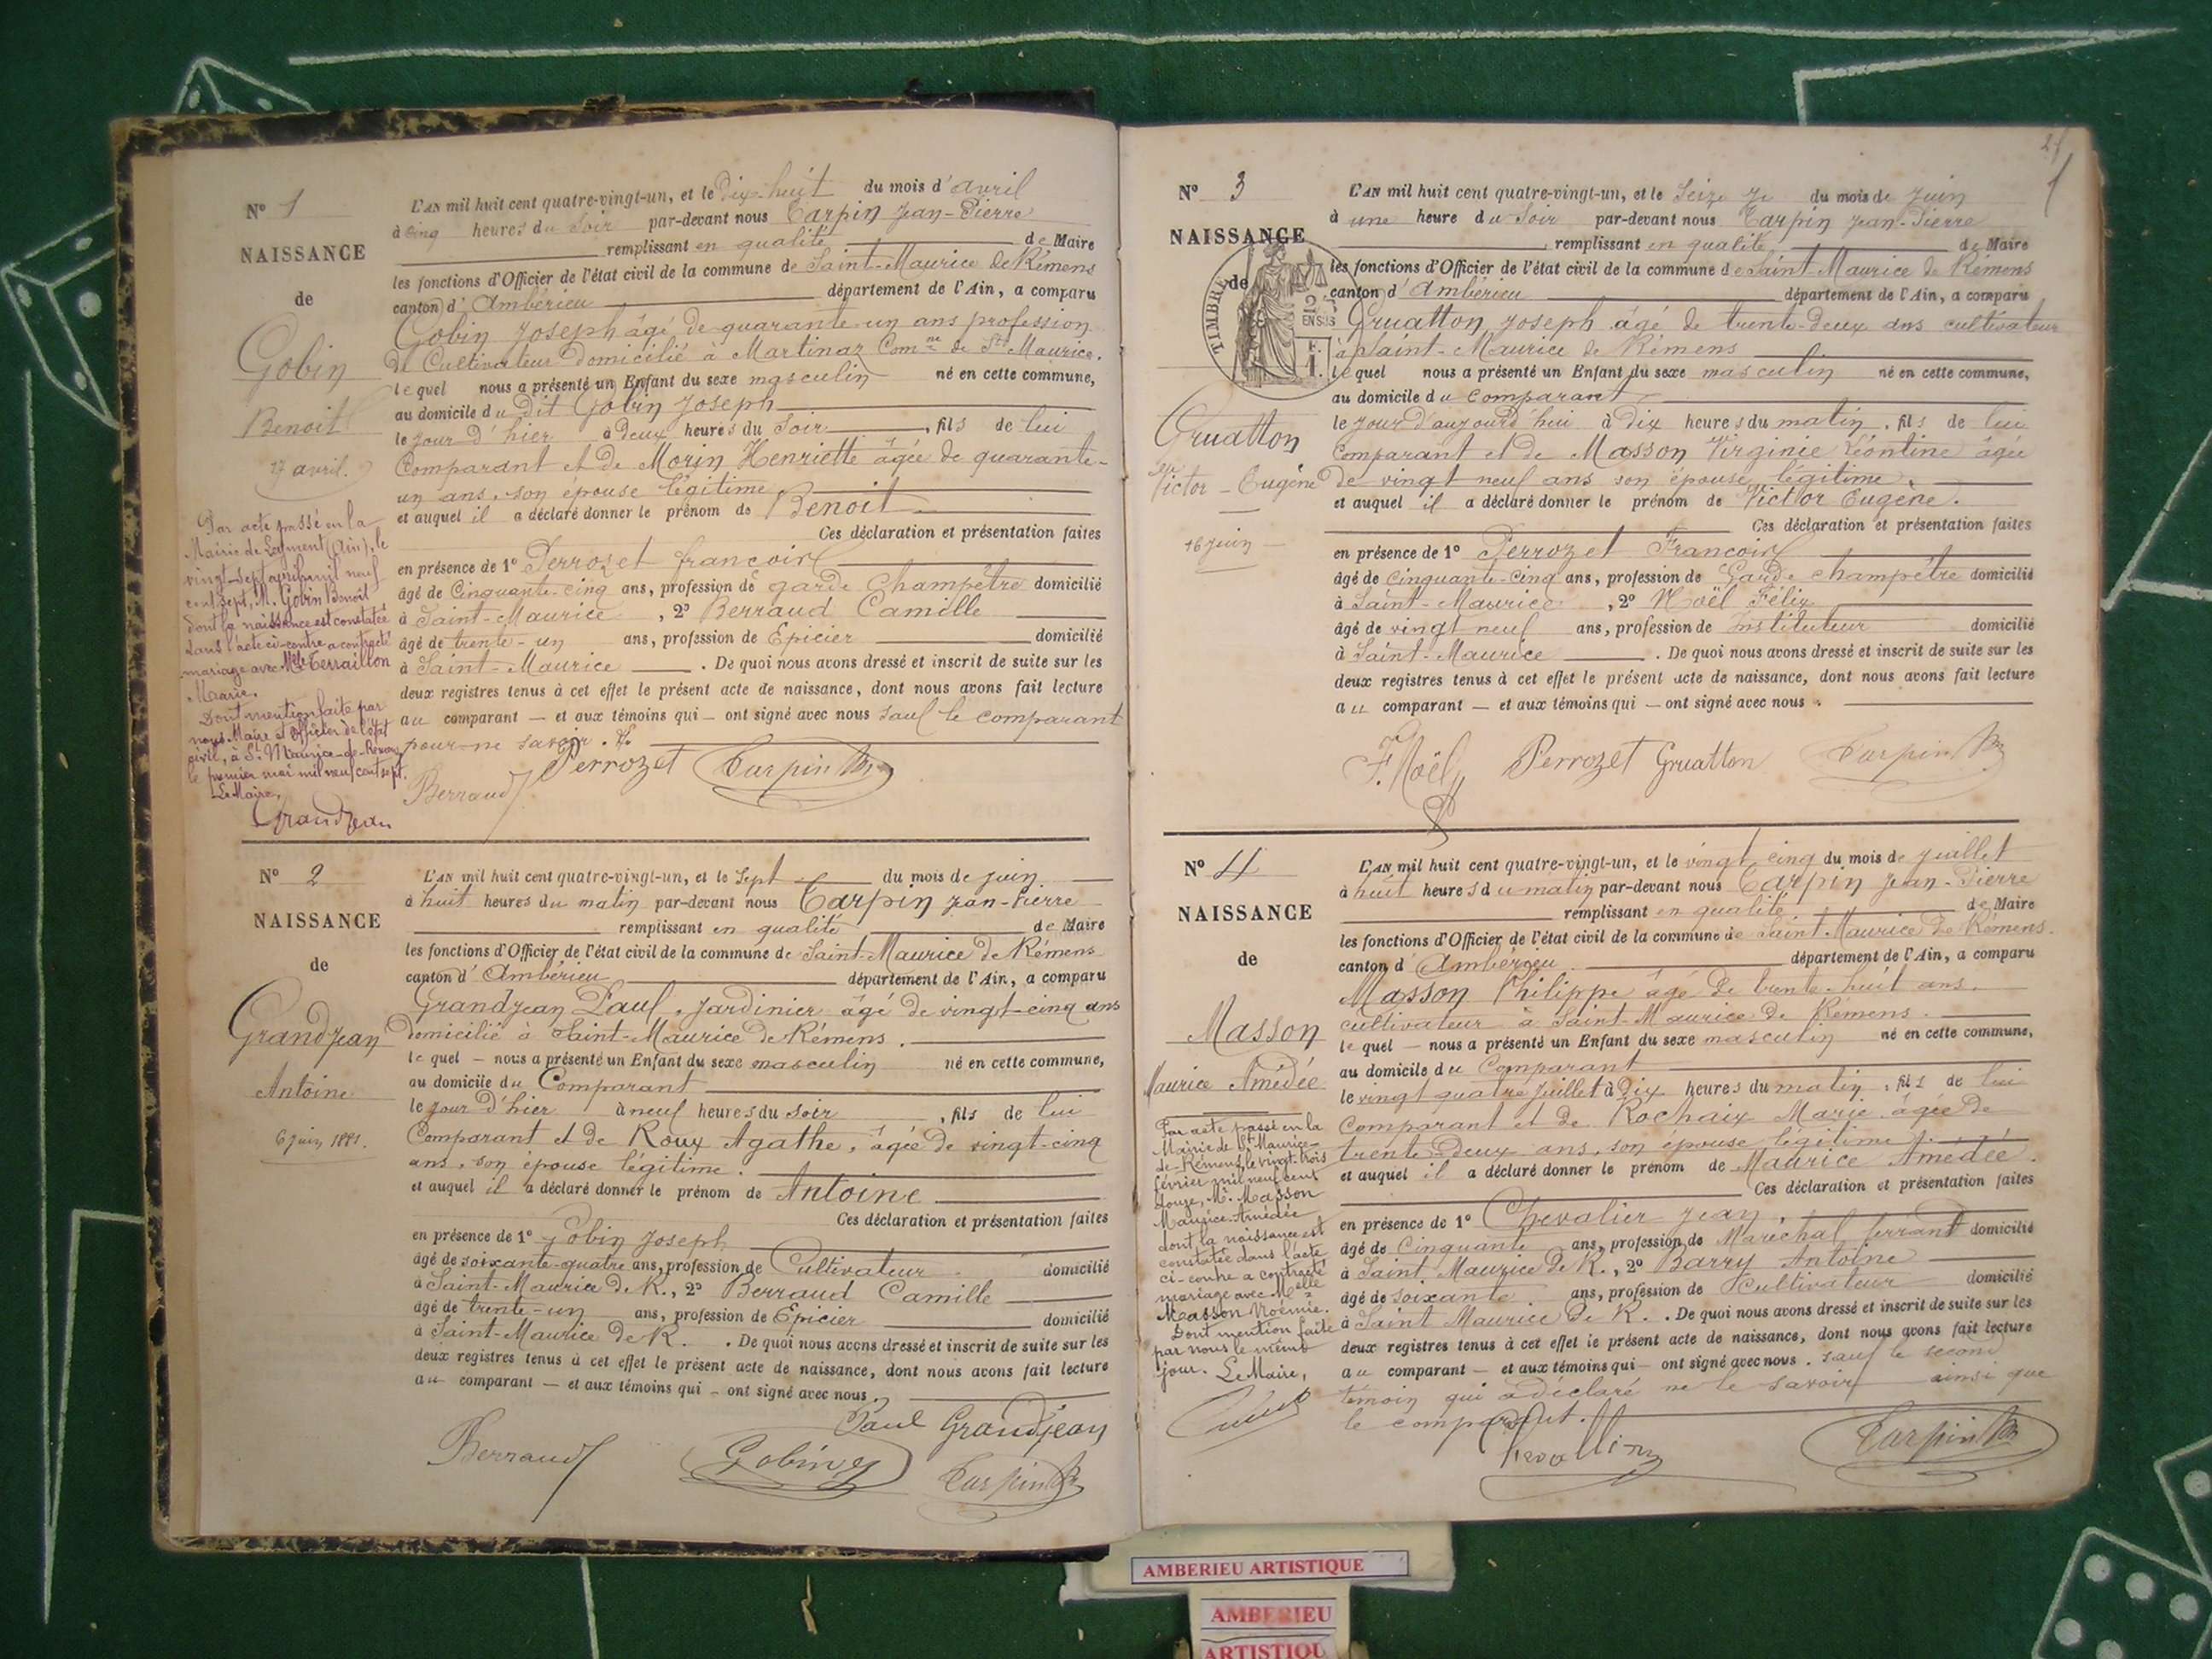 N° 1
NAISSANCE
de
Gobin
Benoit
17 avril.
Par acte passé en la
Mairie de Leyment (Ain), le
vingt-sept avril mil neuf
cent sept, M. Gobin Benoit
dont la naissance est constatée
dans l'acte ci-contre a contracté
mariage avec Mlle Terraillon
Marie.
Dont mention faite par
nous Maire et officier de l'état
civil, à St Maurice-de-Rémens
le premier mai mil neuf cent sept.
Le Maire,
Grandjean
L'AN mil huit cent quatre-vingt-un, et le Dix-huit du mois d'avril
à Cinq heures du Soir par-devant nous Tarpin Jean-Pierre
remplissant en qualité de Maire
les fonctions d'Officier de l'état civil de la commune de Saint-Maurice de Rémens
canton d'Ambérieu département de l'Ain, a comparu
Gobin Joseph âgé de quarante-un ans profession
de Cultivateur domicilié à Martinaz Comne de St Maurice.
lequel nous a présenté un Enfant du sexe masculin né en cette commune,
au domicile du Dit Gobin Joseph
le jour d'hier à Deux heures du Soir, fils de lui
Comparant et de Morin Henriette âgée de quarante-
un ans, son épouse légitime
et auquel il a déclaré donner le prénom de Benoit
Ces déclaration et présentation faites
en présence de 1° Perrozet françois
âgé de Cinquante-cinq ans, profession de garde Champêtre domicilié
à Saint-Maurice, 2° Berraud Camille
âgé de trente-un ans, profession de Epicier domicilié
à Saint-Maurice. De quoi nous avons dressé et inscrit de suite sur les
deux registres tenus à cet effet le présent acte de naissance, dont nous avons fait lecture
au comparant — et aux témoins qui — ont signé avec nous sauf le comparant
pour ne savoir.
Berraud Perrozet Tarpin
N° 2
NAISSANCE
de
Grandjean
Antoine
6 juin 1881.
L'AN mil huit cent quatre-vingt-un, et le Sept du mois de juin
à huit heures du matin par-devant nous Tarpin Jean-Pierre
remplissant en qualité de Maire
les fonctions d'Officier de l'état civil de la commune de Saint-Maurice de Rémens
canton d'Ambérieu département de l'Ain, a comparu
Grandjean Paul, Jardinier âgé de vingt-cinq ans
domicilié à Saint-Maurice de Rémens.
lequel — nous a présenté un Enfant du sexe masculin né en cette commune,
au domicile du Comparant
le jour d'hier à neuf heures du soir, fils de lui
Comparant et de Roux Agathe, âgée de vingt-cinq
ans, son épouse légitime.
et auquel il a déclaré donner le prénom de Antoine
Ces déclaration et présentation faites
en présence de 1° Gobin Joseph
âgé de soixante-quatre ans, profession de Cultivateur domicilié
à Saint-Maurice de R., 2° Berraud Camille
âgé de trente-un ans, profession de Epicier domicilié
à Saint-Maurice de R. De quoi nous avons dressé et inscrit de suite sur les
deux registres tenus à cet effet le présent acte de naissance, dont nous avons fait lecture
au comparant — et aux témoins qui — ont signé avec nous.
Paul Grandjean
Berraud Gobin Tarpin
N° 3
NAISSANCE
de
TIMBRE
2/10 EN SUS
Gruatton
Victor-Eugène
16 juin
L'AN mil huit cent quatre-vingt-un, et le Seize du mois de Juin
à une heure du Soir par-devant nous Tarpin Jean-Pierre
remplissant en qualité de Maire
les fonctions d'Officier de l'état civil de la commune de Saint-Maurice de Rémens
canton d'Ambérieu département de l'Ain, a comparu
Gruatton Joseph âgé de trente-deux ans cultivateur
à Saint-Maurice de Rémens
lequel nous a présenté un Enfant du sexe masculin né en cette commune,
au domicile du Comparant
le jour d'aujourd'hui à Dix heures du matin, fils de lui
Comparant et de Masson Virginie Léontine âgée
de vingt neuf ans son épouse légitime.
et auquel il a déclaré donner le prénom de Victor Eugène.
Ces déclaration et présentation faites
en présence de 1° Perrozet François
âgé de Cinquante-Cinq ans, profession de Garde champêtre domicilié
à Saint-Maurice, 2° Noël Félix
âgé de vingt neuf ans, profession de Instituteur domicilié
à Saint-Maurice. De quoi nous avons dressé et inscrit de suite sur les
deux registres tenus à cet effet le présent acte de naissance, dont nous avons fait lecture
au comparant — et aux témoins qui — ont signé avec nous.
F. Noël Perrozet Gruatton Tarpin
N° 4
NAISSANCE
de
Masson
Maurice Amédée
Par acte passé en la
Mairie de St Maurice-
de-Rémens, le vingt-trois
février mil neuf cent
douze, Mr. Masson
Maurice-Amédée
dont la naissance est
constatée dans l'acte
ci-contre a contracté
mariage avec Melle
Masson Noémie.
Dont mention faite
par nous le même
jour. Le Maire,
L'AN mil huit cent quatre-vingt-un, et le vingt cinq du mois de Juillet
à huit heures du matin par-devant nous Tarpin Jean-Pierre
remplissant en qualité de Maire
les fonctions d'Officier de l'état civil de la commune de Saint-Maurice de Rémens.
canton d'Ambérieu département de l'Ain, a comparu
Masson Philippe âgé de trente-huit ans.
cultivateur à Saint-Maurice de Rémens.
lequel — nous a présenté un Enfant du sexe masculin né en cette commune,
au domicile du Comparant
le vingt quatre Juillet à Dix heures du matin, fils de lui
Comparant et de Rochaix Marie âgée de
trente Deux ans, son épouse légitime.
et auquel il a déclaré donner le prénom de Maurice Amédée.
Ces déclaration et présentation faites
en présence de 1° Chevalier Jean,
âgé de Cinquante ans, profession de Maréchal ferrant domicilié
à Saint Maurice de R., 2° Barry Antoine
âgé de soixante ans, profession de Cultivateur domicilié
à Saint Maurice de R. De quoi nous avons dressé et inscrit de suite sur les
deux registres tenus à cet effet le présent acte de naissance, dont nous avons fait lecture
au comparant — et aux témoins qui — ont signé avec nous. sauf le second
témoin qui a déclaré ne le savoir ainsi que
le comparant.
Tarpin
AMBERIEU ARTISTIQUE
AMBERIEU
ARTISTIQU